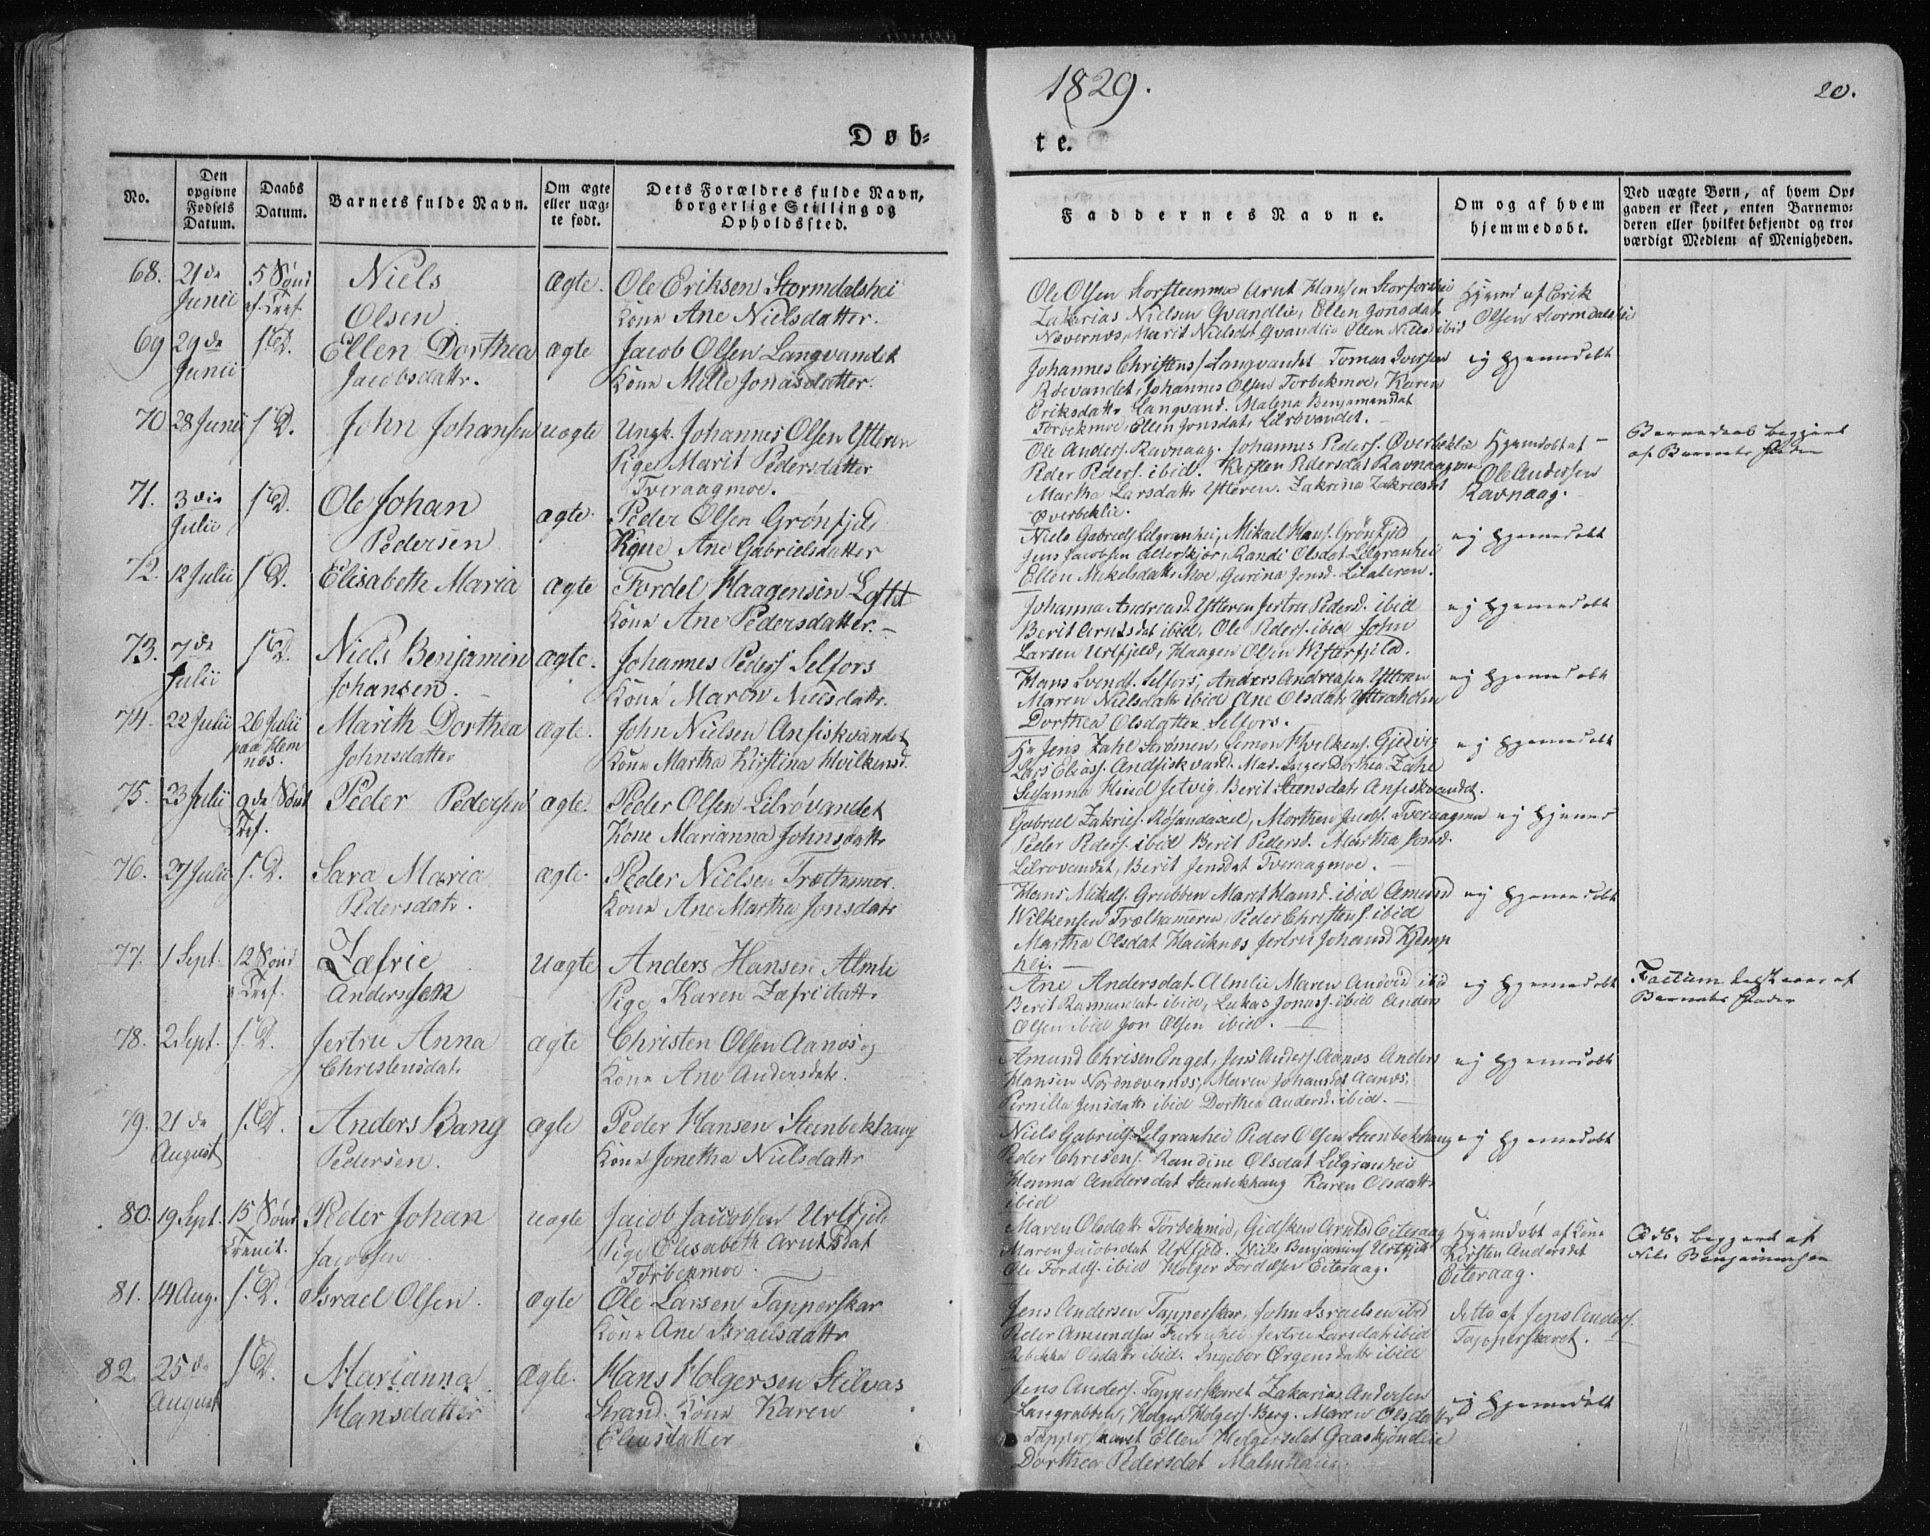 1829.
20.
Døb=
te.
No.
Den opgivne Fødsels Datum.
Daabs Datum.
Barnets fulde Navn.
Om ægte eller uægte født.
Dets Forældres fulde Navn, borgerlige Stilling og Opholdssted.
Faddernes Navne.
Om og af hvem hjemmedøbt.
Ved uægte Børn, af hvem Opgaven er skeet, enten Barnemoderen eller hvilket bekjendt og troværdigt Medlem af Menigheden.
68. 21de Junii 5 Sønd ef. Tref. Niels Olsen ægte. Ole Eriksen Stormdalshei
Kone Ane Nielsdatter.
Ole Olsen Storsteenmoe Arnt Hansen Storforshei
Zakarias Nielsen Qvandlie, Ellen Jonsdat
Nævernæs, Marit Nielsdat Qvandlie Ellen Niels ibid
Hjemd af Erik
Olsen Stormdalshei
69 29de Junii s.D. Ellen Dorthea Jacobsdattr. ægte Jacob Olsen Langvandet
Kone Mille Jonasdatter.
Johannes Christens/ Langvandet Tomas Iversen
Røevandet, Johannes Olsen Torbekmoe, Karen
Eriksdattr Langvand. Malena Benjamensdat
Torbekmoe, Ellen Jonsdat, Lilrøvandet.
ej hjemmedøbt
70 28 Junii s.D. John Johansen uægte Ungk. Johannes Olsen Ytteren
Pige Marit Pedersdatter
Tveraagmoe.
Ole Anders. Ravnaag. Johannes Peders. Øverbeklie
Peder Peders. ibid. Kirsten Pedersdat Ravnaagmoe
Martha Larsdattr Ytteren. Zakrina Zakriesdat
Øverbeklie.
Hjemdøbt af
Ole Andersen
Ravnaag.
Barnedaab begjert
af Barnets Fader
71. 3die Julii s.D. Ole Johan Pedersen ægte. Peder Olsen Grønfjeld
Kone Ane Gabrielsdatter
Niels Gabriels. Lilgranhei, Mikael Hans. Grønfjeld
Jens Jacobsen Alterskjær, Randi Olsdat Lilgranhei
Ellen Mikelsdattr Moe, Gurina Jensd. Lilateren.
ej hjemmedøbt
72. 12 Julii s.D. Elisabethe Maria ægte Tordel Haagensen
Kone Ane Pedersdatter.
Johanna Andreasd. Ytteren Jertru Pedersd. ibid
Berit Arntsdat ibid. Ole Peders. ibid John
Larsen Urlfjeld, Haagen Olsen
ej hjemmedøbt
73. 7de Julii s.D. Niels Benjamin Johansen. ægte. Johannes Peders. Selfors
Kone Maren Nielsdattr.
Hans Svends. Selfors, Anders Andreasen Ytteren
Maren Nielsdattr ibid Ane Olsdat, Ytteraholm
Dorthea Olsdatter Selfors.
ej hjemmedøbt
74. 22 Julii 26 Julii paa Hemnæs. Marith Dorthea Johnsdatter ægte. John Nielsen Anfiskvandet
Kone Martha Kirstina Hvilkensd.
Hr Jens Zahl Strømen, Simon Hvilkens. Gjedvig
Lars Elias. Andfiskvand. Mad. Inger Dorthea Zahl
Susanna Hind Jetvig, Berit Steensdatr Anfiskvandet.
ej hjemmedøbt
75. 23 Julii 9de Sønd Tref. Peder Pedersen ægte. Peder Olsen Lilrøvandet
Kone Marianna Johnsdattr
Gabriel Zakries. Røsandaxel, Morthen Jacobs. Tveraagmoe
Peder Peders. ibid Berit Pedersd. Martha Jonsd.
Lilrøvandet, Berit Jensdat Tveraagmoe.
ej hjemmed
76. 27 Julii s.D. Sara Maria Pedersdatr. ægte. Peder Nielsen Trælhamer.
Kone Ane Martha Jonsdatr
Hans Mikels. Grubben Maret Hansd. ibid Amund
Wilkensen Trælhameren, Peder Christens. ibid
Martha Olsdat Hauknæs, Jertru Johansd Kjemp
hei.
ej hjemmedøbt
77. 1 Sept. 12 Sønd Tref. Zæfrie Anderssen uægte Anders Hansen Almlie
Pige Karen Zæfridattr.
Ane Andersdat. Almlie Maren Andersd ibid
Berit Rasmusdat ibid, Lukas Jonas. ibid Anders
Olsen ibid Jon Olsen ibid.
ej hjemmedøbt
Factum af
Barnets Fader
78. 2 Sept. s.D. Jertru Anna Christensdat. ægte Christen Olsen Aanæs og
Kone Ane Andersdatr.
Amund Chrisen Enget, Jens Anders. Aanæs Anders
Hansen Nordnævernæs, Maren Johansdat Aanæs,
Pernilla Jensdattr ibid Dorthea Andersd. ibid.
ej hjemmedøbt
79. 21de August s.D. Anders Bang Pedersen. ægte Peder Hansen Steinbekhaug
Kone Jonetha Nielsdattr
Niels Gabriels. Lilgranhei Peder Olsen Steenbekhaug
Peder Chrisens. Randine Olsdat Lilgranhei
Hemma Andersdat Steinbekhaug Karen Olsdattr
ibid
ej hjemmedøbt
80. 19 Sept. 15 Sønd Trenit. Peder Johan Jacobsen uægte Jacob Jacobsen Urlfjeld
Pige Elisabeth Arntsdat
Torbekmoe
Maren Olsdattr Torbekmoe, Gidsken Arnts. Eiteraag
Maren Jacobsdat Urlfjeld. Niels Benjamins Urtfjeld
Ole Tordels. ibid Holger Tordelsen Eiteraag.
Hjemdøbt af Kone
Kirsten Andersdat
Eiteraag.
Ødb. Beggert af
Nils Benjaminsen
81. 14 Aug. s.D. Israel Olsen. ægte Ole Larsen Tapperskar
Kone Ane Israelsdattr
Jens Andersen Tapperskar, John Israelsen ibid
Peder Amundsen Furruhei, Jertru Larsdat ibid
Rebekka Olsdattr ibid. Ingebor Ørgensdattr ibid
detto af Jens Anders.
Tapperskaret.
82. 25de August s.D. Marianna Hansdatter ægte. Hans Holgersen Stilvas
Strand. Kone Karen
Eliasdatter
Jens Anders. Tapperskaret Zakarias Andersen
Langrubben, Holger Holgers. Berg. Maren Olsdattr
Tapperskaret Ellen Holgersdat Gaaskjønlie
Dorthea Pedersdat Malmhaug
ej hjemmedøbt